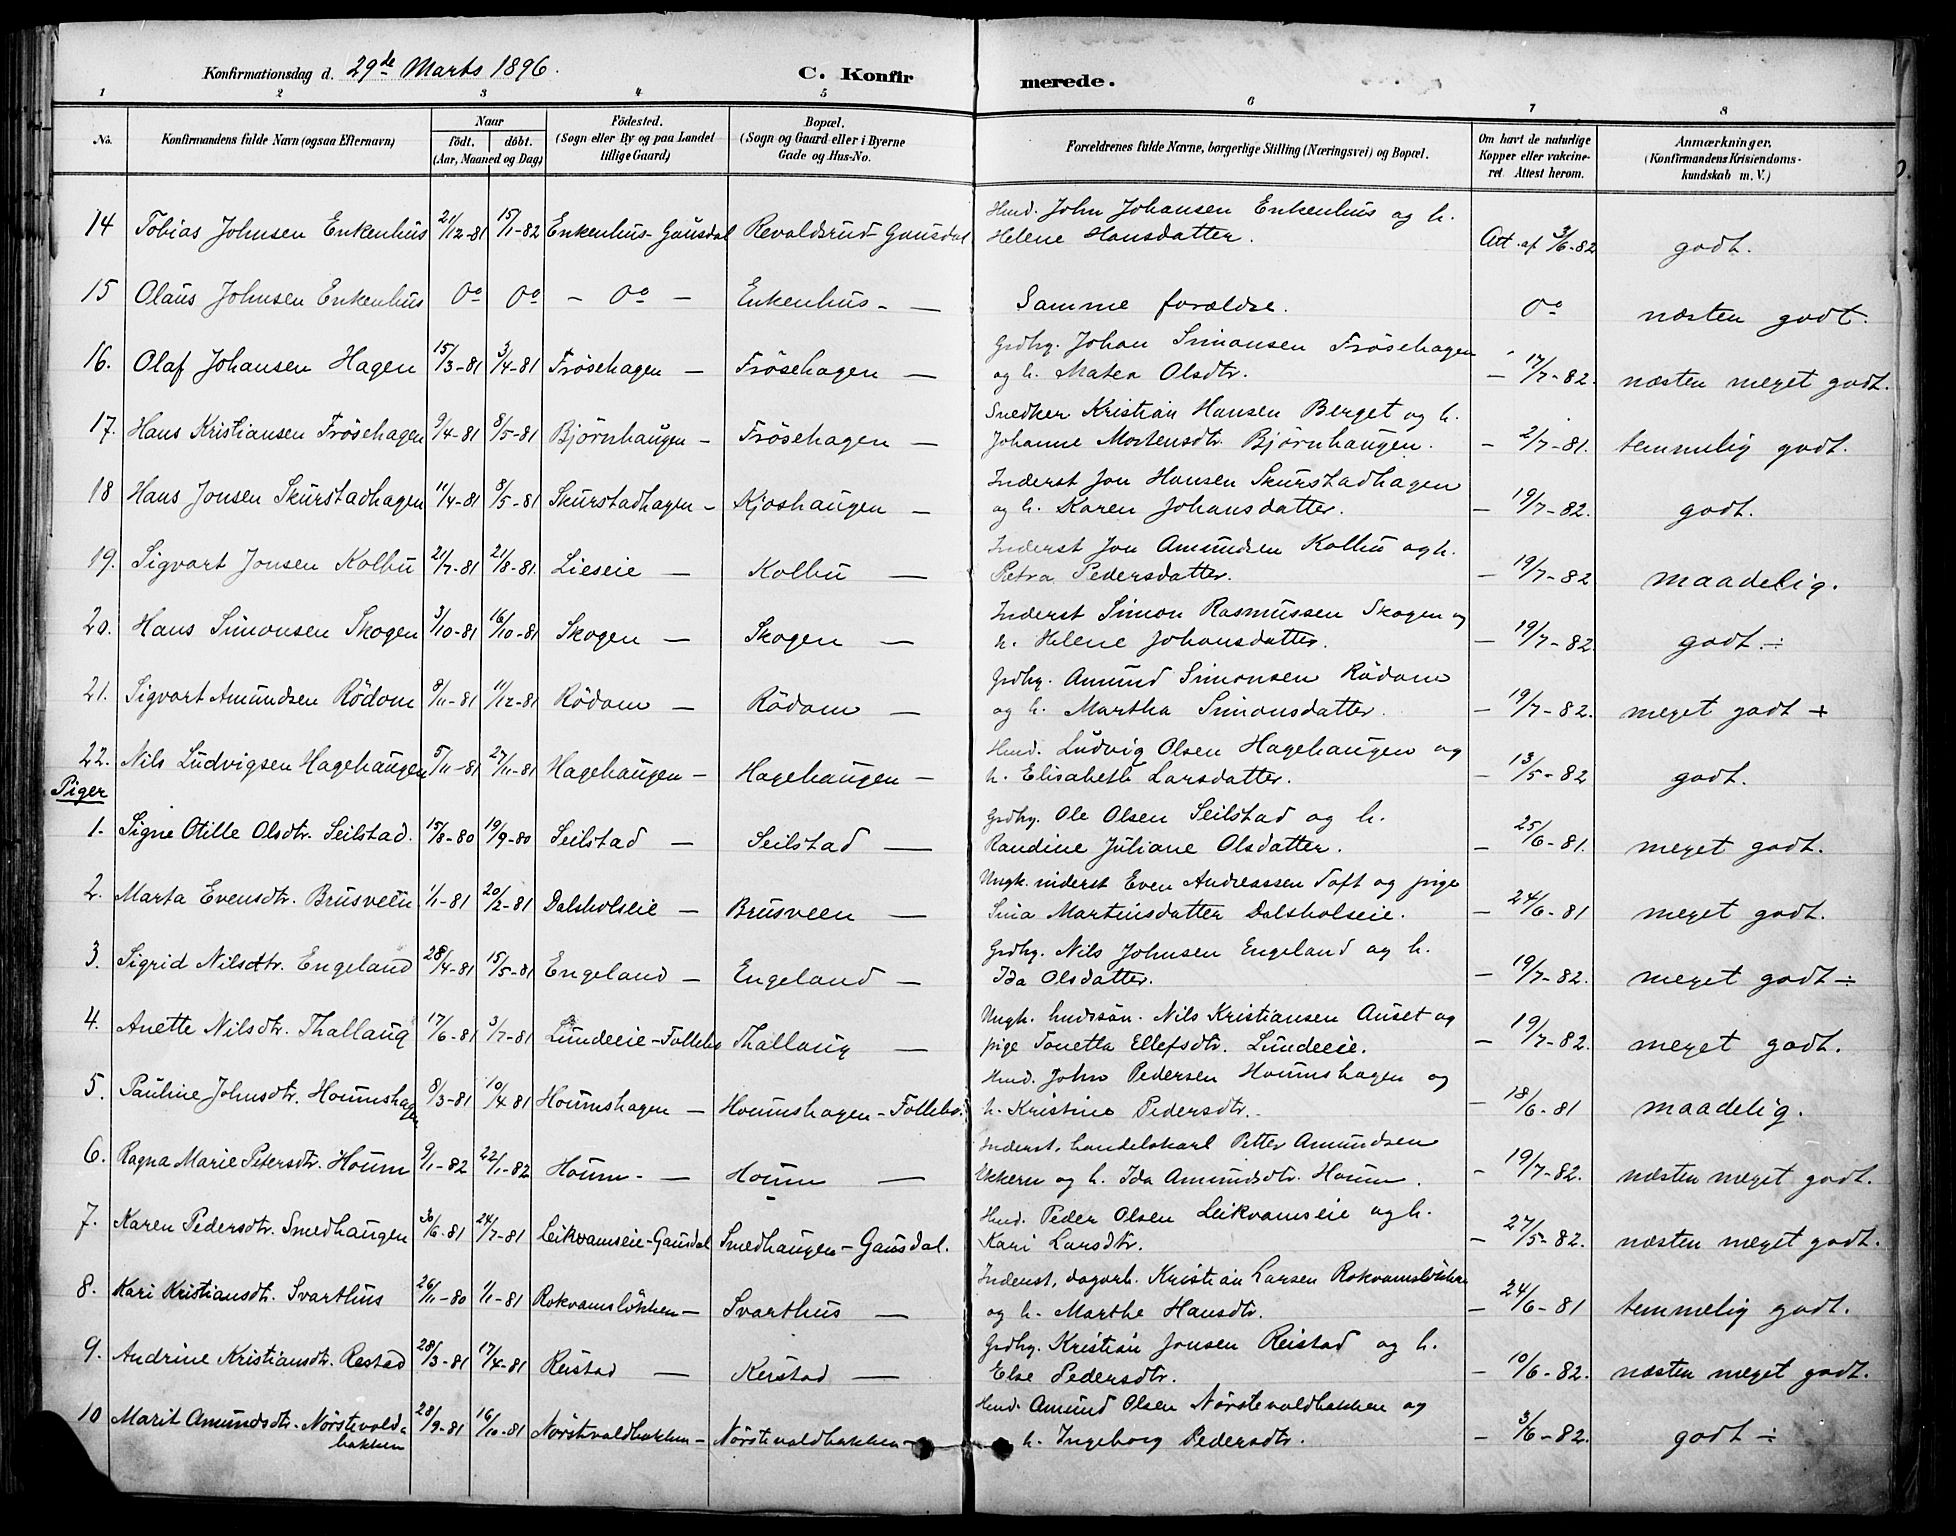 Konfirmationsdag d. 29de Marts 1896. C. Konfirmerede.
1 2 3 4 5 6 7 8
No. Konfirmandens fulde Navn (ogsaa Efternavn) Naar födt. döbt. (Aar, Maaned og Dag) Födested. (Sogn eller By og paa Landet tillige Gaard) Bopæl. (Sogn og Gaard eller i Byerne Gade og Hus-No. Forældrenes fulde Navne, borgerlige Stilling (Næringsvei) og Bopæl. Om havt de naturlige Kopper eller vakcineret Attest herom. Anmærkninger. (Konfirmandens Kristendomskundskab m. V.)
14 Tobias Johnsen Enkenhus 21/12-81 15/1-82 Enkenhus-Gausdal Revaldsrud-Gausdal Hmd. John Johansen Enkenhus og h. Helene Hansdatter. Att. af 3/6-82 godt.
15 Olaus Johnsen Enkenhus Do Do - Do - Enkenhus - — Samme forældre. Do næsten godt.
16. Olaf Johansen Hagen 15/3-81 3/4-81 Frösehagen — Frösehagen — Grdbr. Johan Simonsen Frösehagen og h. Matea Olsdtr. — 17/7-82. næsten meget godt.
17. Hans Kristiansen Frösehagen 9/4-81 8/5-81 Björnhaugen - Frösehagen — Snedker Kristian Hansen Berget og h. Johanne Mortensdtr. Björnhaugen. — 2/7-81. temmelig godt.
18 Hans Jonsen Skurstadhagen 11/4-81 8/5-81 Skurstadhagen - Kjoshaugen — Inderst Jon Hansen Skurstadhagen og h. Karen Johansdatter. — 19/7-82. godt.
19. Sigvart Jonsen Kolbu 21/7-81 21/8-81. Lieseie — Kolbu — Inderst Jon Amundsen Kolbu og h. Petra Pedersdatter. — 19/7-82 maadelig.
20. Hans Simonsen Skogen 3/10-81 16/10-81 Skogen — Skogen — Inderst Simon Rasmussen Skogen og h. Helene Johansdatter. — 19/7-82. godt ÷
21. Sigvart Amundsen Rödom 8/11-81 11/12-81 Rödom — Rödom — Grdbr. Amund Simonsen Rödom og h. Martha Simonsdatter. — 19/7-82. meget godt +
22. Nils Ludvigsen Hagehaugen 5/11-81 27/11-81 Hagehaugen — Hagehaugen — Hmd. Ludvig Olsen Hagehaugen og h. Elisabeth Larsdatter. — 13/5-82 godt.
Piger
1. Signe Otille Olsdtr. Seilstad. 15/8-80 19/9-80 Seilstad — Seilstad — Grdbr. Ole Olsen Seilstad og h. Randine Juliane Olsdatter. — 25/6-81. meget godt.
2. Marta Evensdtr. Brusveen 1/1-81 20/2-81 Dalsholseie — Brusveen — Ungk. inderst Even Andreassen Toft og pige Sina Martinsdatter Dalsholseie. — 24/6-81 meget godt.
3. Sigrid Nilsdtr. Engeland 28/4-81 15/5-81 Engeland — Engeland — Grdbr. Nils Johnsen Engeland og h. Ida Olsdatter. — 19/7-82. meget godt ÷
4. Anette Nilsdtr. Thallaug 17/6-81 3/7-81 Lundeeie-Follebu Thallaug — Ungk. hudssön. Nils Kristiansen Auset og pige Tonetta Ellefsdtr. Lundeeie. — 19/7-82. meget godt.
5. Pauline Johnsdtr. Houmshagen 8/3-81 10/4 81 Houmshagen — Houmshagen-Follebu. Hmd. John Pedersen Houmshagen og h. Kristine Pedersdtr. — 18/6-81 maadelig.
6. Ragna Marie Petersdtr. Houm 9/1-82 22/1-82 Houm - — Houm — Inderst, handelskarl Petter Amundsen Ukkern og h. Ida Amundsdtr. Houm. — 19/7-82. næsten meget godt.
7. Karen Pedersdtr. Smedhaugen 30/6-81 24/7-81 Leikvamseie-Gausdal Smedhaugen-Gausdal. Hmd. Peder Olsen Leikvamseie og h. Kari Larsdtr. — 27/5-82. næsten meget godt.
8. Kari Kristiansdtr. Svarthus 26/11-80 1/1-81 Rokvamslökken — Svarthus — Inderst, dagarb. Kristian Larsen Rokvamslökken og h. Marthe Hansdtr. — 24/6-81 temmelig godt.
9. Andrine Kristiansdtr. Restad 28/3-81 17/4-81 Reistad — Reistad — Grdbr. Kristian Jonsen Reistad og h. Else Pedersdtr. — 10/6-82. næsten meget godt.
10 Marit Amundsdtr. Nörstevoldbakken 28/9-81 16/10-81 Nörstevoldbakken — Nörstevoldbakken — Hmd. Amund Olsen Nörstevoldbakken og h. Ingeborg Pedersdtr. — 3/6-82. godt ÷